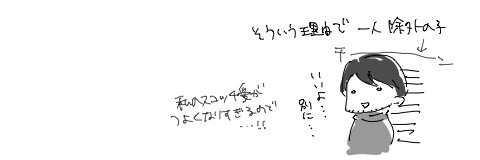 そういう理由で 一人 除外の子
チーン
いいよ…
別に…
私のスコッチ愛が
つよくなりすぎるので
…!!